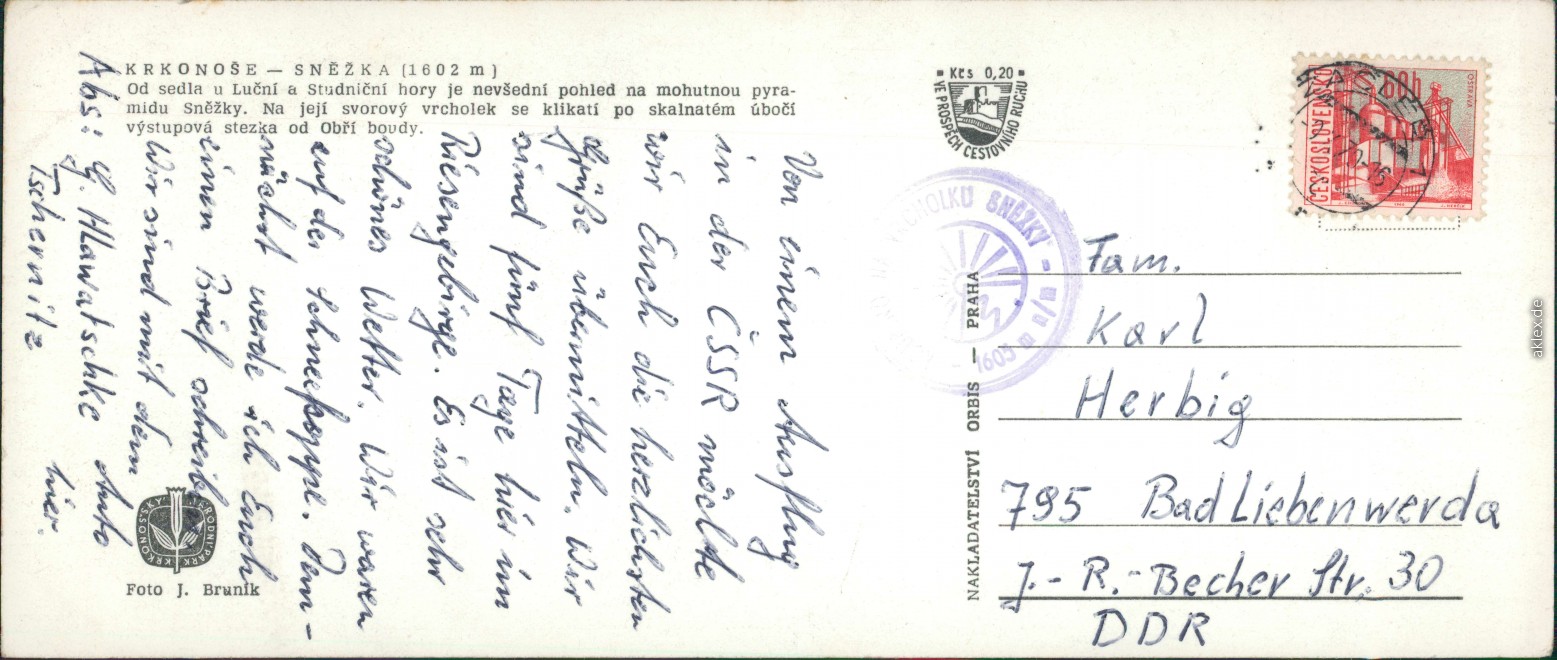 KRKONOŠE — SNĚŽKA (1602 m)
Od sedla u Luční a Studniční hory je nevšední pohled na mohutnou pyra-
midu Sněžky. Na její svorový vrcholek se klikatí po skalnatém úbočí
výstupová stezka od Obří boudy.
Von einem Ausflug
in der ČSSR möchte
wir Euch die herzlichsten
Grüße übermitteln. Wir
sind fünf Tage hier im
Riesengebirge. Es ist sehr
schönes Wetter. Wir waren
auf der Schneekoppe. Dem-
nächst werde ich Euch
einen Brief schreiben.
Wir sind mit dem
Auto
hier.
Abs: G. Hlawatschke
Tschernitz
KRKONOŠSKÝ NÁRODNÍ PARK
Foto J. Bruník
Kčs 0,20
VE PROSPĚCH CESTOVNÍHO RUCHU
VRCHOLKU SNĚŽKY
1603 m
NAKLADATELSTVÍ ORBIS — PRAHA
ČESKOSLOVENSKO
60h
OSTRAVA
Fam.
Karl
Herbig
795 Bad Liebenwerda
J.-R.-Becher Str. 30
DDR
aklex.de